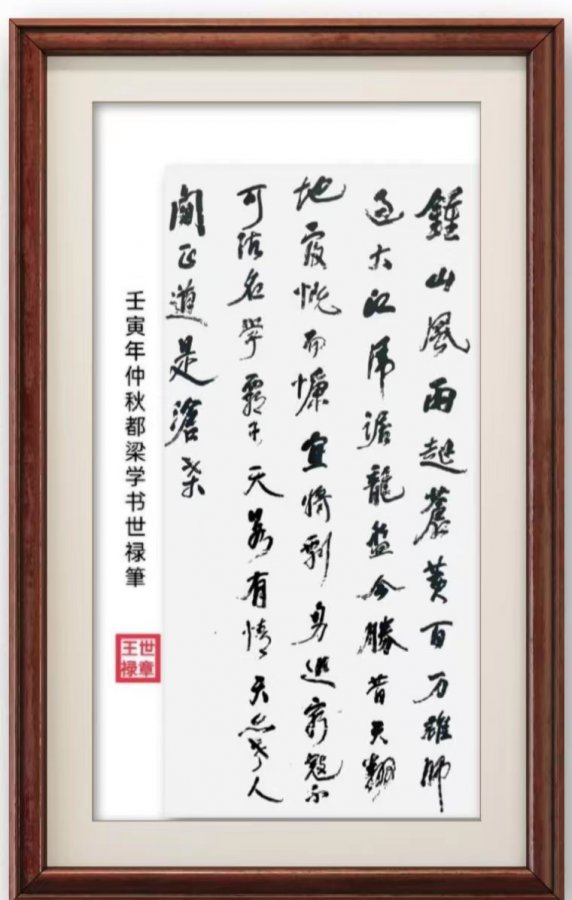 鍾山風雨起蒼黄百万雄師
过大江虎踞龍盘今勝昔天翻
地覆慨而慷宜將剩勇追窮寇不
可沽名學霸王天若有情天亦老人
間正道是滄桑
壬寅年仲秋都梁学书世禄筆
王世
禄章